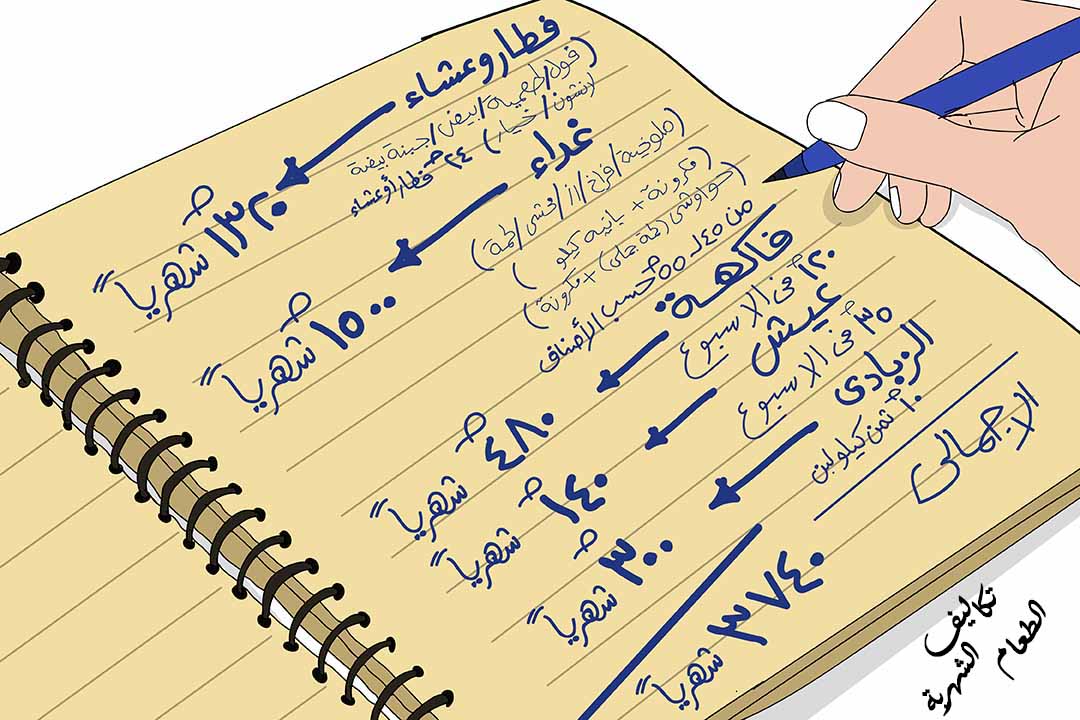 فطار وعشاء
(فول/طعمية/بيض/جبنة بيضة
لانشون/خيار) ٢٤ جـ فطار أو عشاء
١٣٢٠ جـ شهرياً
غداء
(ملوخية/فراخ/ارز/محشى/لحمة)
(مكرونة + بانيه كيلو)
(حواوشى (لحمة جملى) + مكرونة)
من ٤٥ لـ ٥٥ جـ حسب الأصناف
١٥٠٠ جـ شهرياً
فاكهة
١٢٠ جـ فى الاسبوع
٤٨٠ جـ شهرياً
عيش
٣٥ جـ فى الاسبوع
١٤٠ جـ شهرياً
الزبادى
١٠ جـ ثمن كيلو لبن
٣٠٠ جـ شهرياً
الاجمالى
٣٧٤٠ شهرياً
تكاليف
الطعام
الشهرية